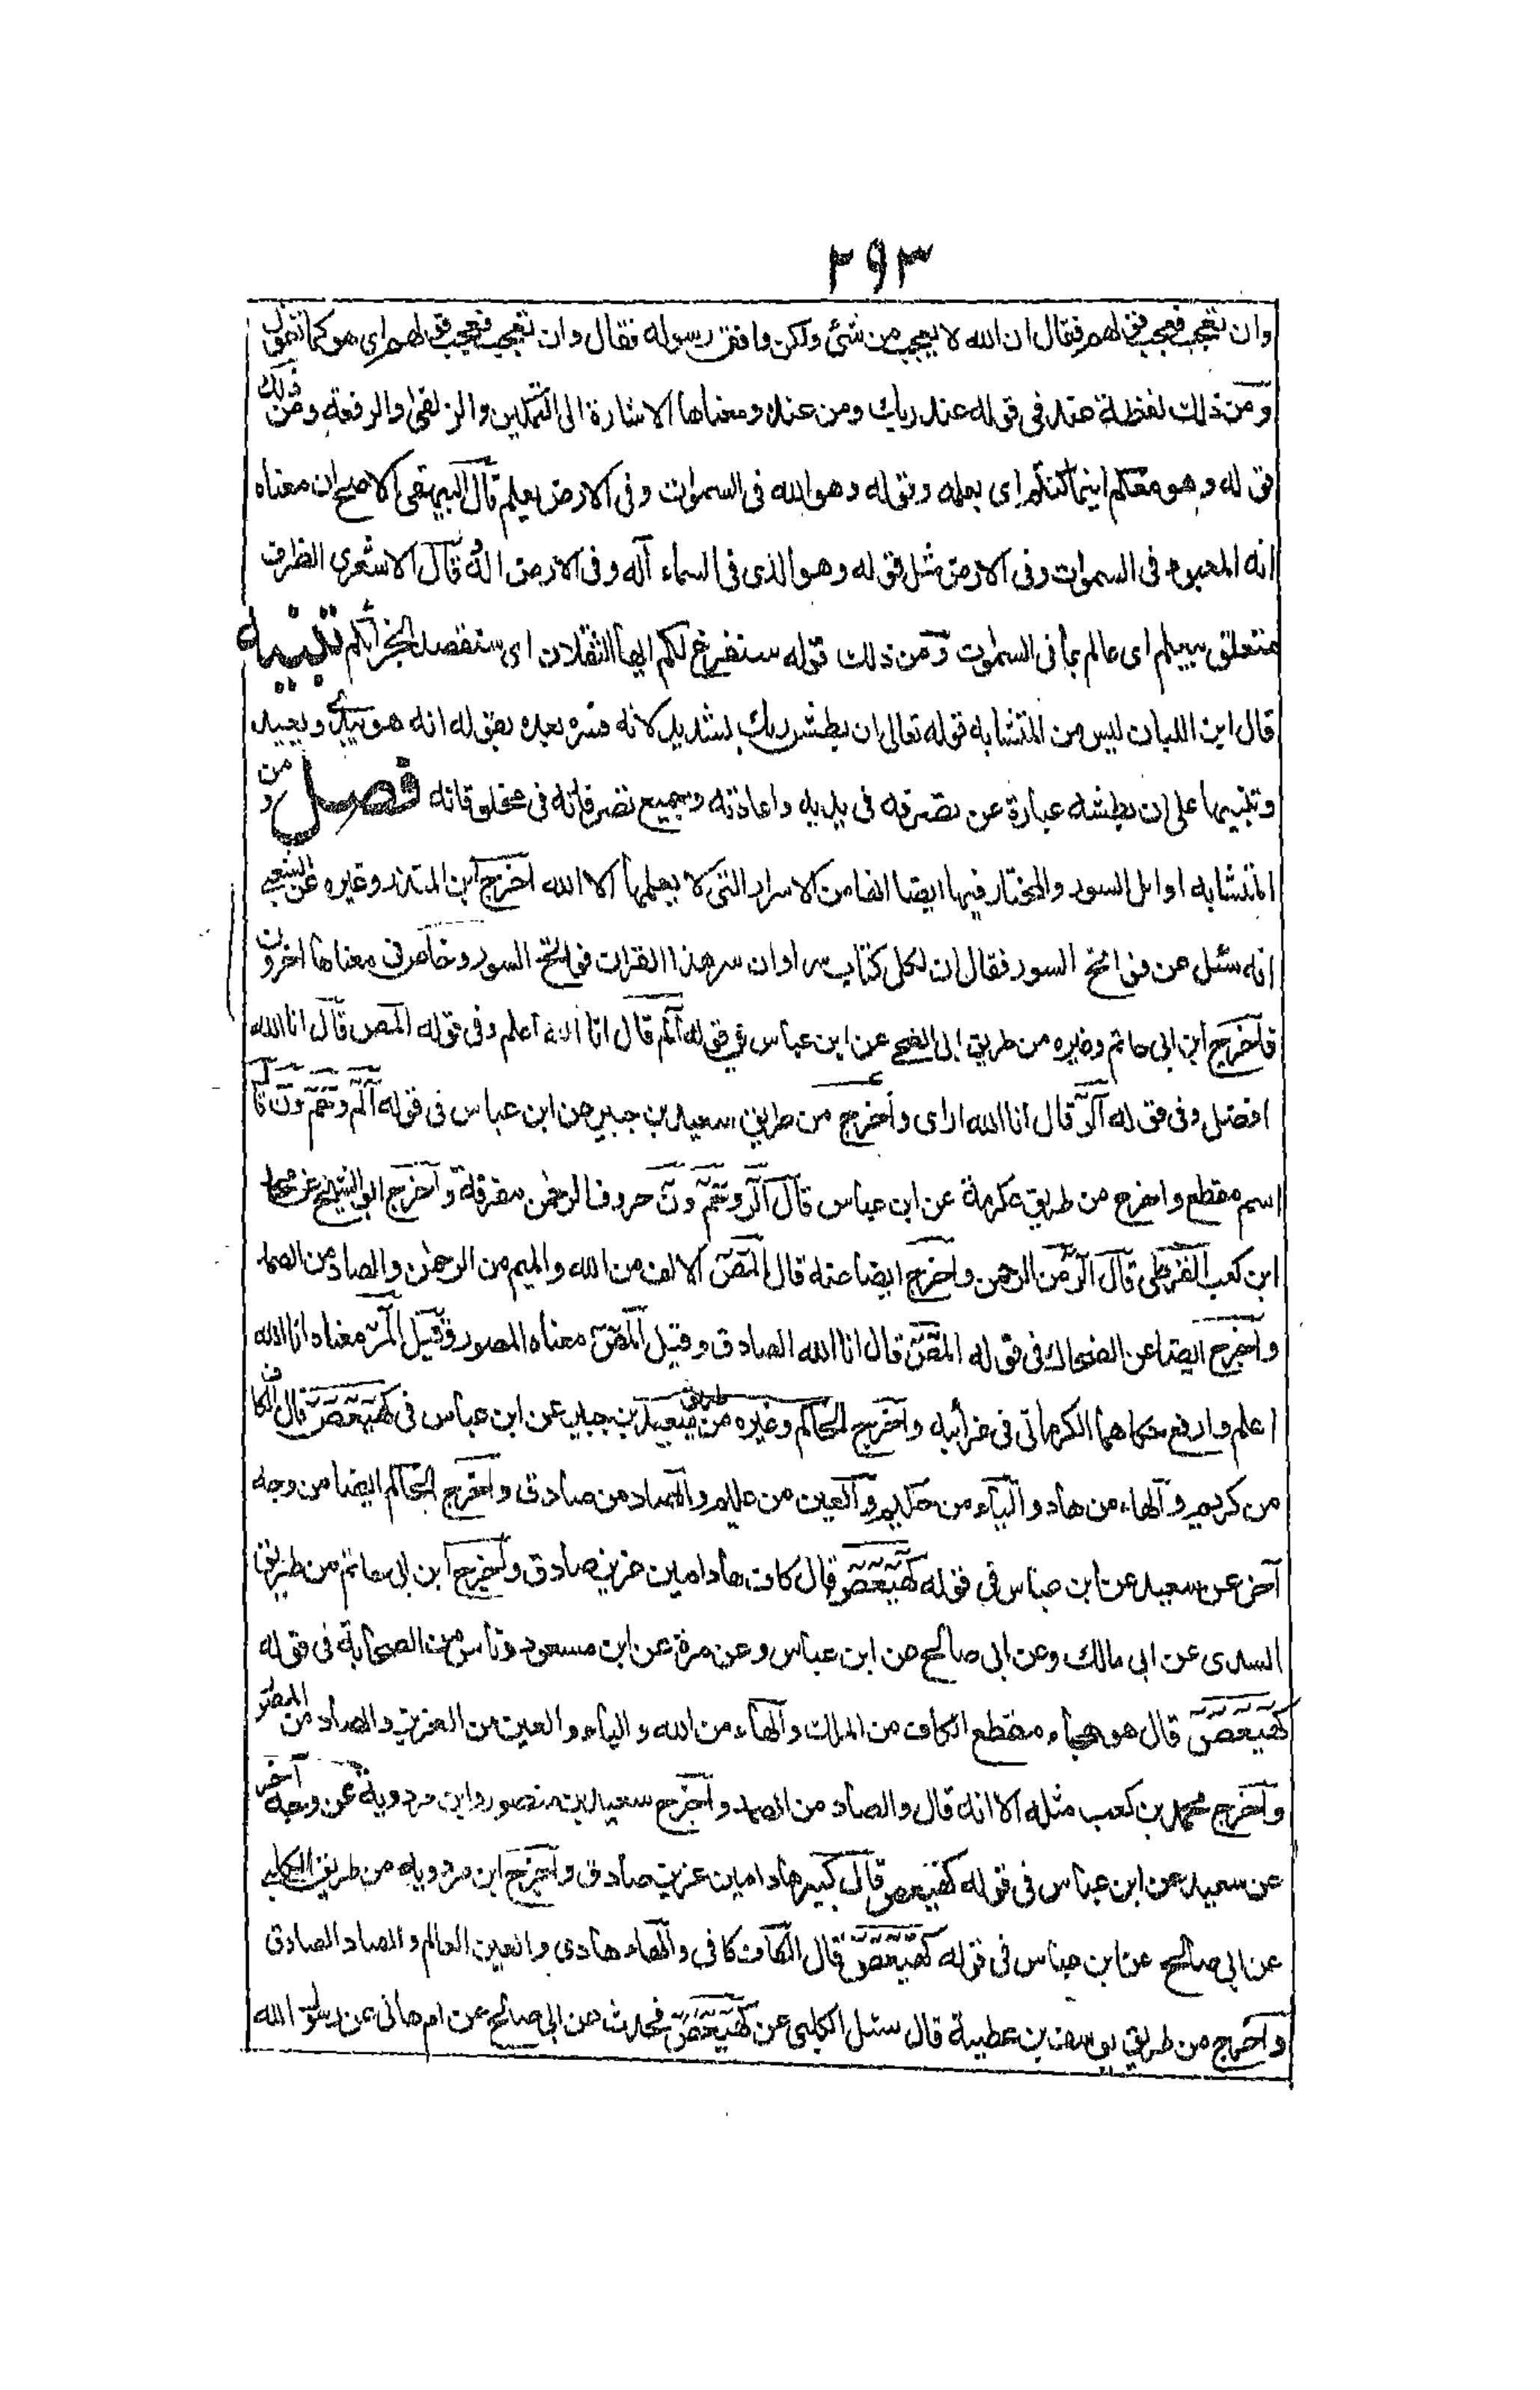 ٢٩٣
وان تعجب فعجب قولهم فقال ان الله لا يعجب من شئ ولكن وافق رسوله فقال وان تعجب فعجب قولهم اى هو كما تقول
ومن ذلك لفظة عند فى قوله عند ربك ومن عنده ومعناها الاشارة الى التمكين والزلفى والرفعة ومن ذلك
قوله وهو معكم اينما كنتم اى بعلمه وقوله وهو الله فى السموات وفى الارض يعلم قال البيهقى الاصح ان معناه
انه المعبود فى السموات وفى الارض مثل قوله وهو الذى فى السماء آله وفى الارض اله قال الاشعرى الظرف
متعلق بيعلم اى عالم بما فى السموت ومن ذلك قوله سنفرغ لكم ايها الثقلان اى سنقصد لجزائكم تنبيه
قال ابن اللبان ليس من المتشابه قوله تعالى ان بطش ربك لشديد لانه فسره بعده بقوله انه هو يبدئ ويعيد
وتنبيها على ان بطشه عبارة عن تصرفه فى بديه واعادته وجميع تصرفاته فى مخلوقاته فصل ومن
المتشابه اوائل السور والمختار فيها ايضا انها من الاسرار التى لا يعلمها الا الله اخرج ابن المنذر وغيره عن الشعبى
انه سئل عن فواتح السور فقال ان لكل كتاب سرا وان سر هذا القران فواتح السور وخاض فى معناها اخرون
فاخرج ابن ابى حاتم وغيره من طريق ابى الضحى عن ابن عباس فى قوله آلم قال انا الله اعلم وفى قوله المص قال انا الله
افضل وفى قوله آلر قال انا الله ارى واخرج من طريق سعيد بن جبير عن ابن عباس فى قوله آلم وحم ون قال
اسم مقطع واخرج من طريق عكرمة عن ابن عباس قال آلر وحم ون حروف الرحمن مفرقة واخرج ابو الشيخ عن محمد
ابن كعب القرظى قال الر من الرحمن واخرج ايضا عنه قال المص الالف من الله والميم من الرحمن والصاد من الصمد
واخرج ايضا عن الضحاك فى قوله المص قال انا الله الصادق وقيل المص معناه المصور وقيل المر معناه انا الله
اعلم وارفع حكاهما الكرمانى فى غرائبه واخرج الحاكم وغيره من طريق سعيد بن جبير عن ابن عباس فى كهيعص قال الكاف
من كريم والهاء من هاد والياء من حكيم والعين من عليم والصاد من صادق واخرج الحاكم ايضا من وجه
آخر عن سعيد عن ابن عباس فى قوله كهيعص قال كاف هاد امين عزيز صادق واخرج ابن ابى حاتم من طريق
السدى عن ابى مالك وعن ابى صالح عن ابن عباس وعن مرة عن ابن مسعود وناس من الصحابة فى قوله
كهيعص قال هو هجاء مقطع الكاف من الملك والهاء من الله والياء والعين من العزيز والصاد من المصور
واخرج محمد بن كعب مثله الا انه قال والصاد من الصمد واخرج سعيد بن منصور وابن مردوية عن وجه آخر
عن سعيد عن ابن عباس فى قوله كهيعص قال كبير هاد امين عزيز صادق واخرج ابن مردويه من طريق الكلبى
عن ابى صالح عن ابن عباس فى قوله كهيعص قال الكاف كافى والهاء هادى والعين العالم والصاد الصادق
واخرج من طريق يوسف بن عطية قال سئل الكلبى عن كهيعص فحدث عن ابى صالح عن ام هانى عن رسول الله